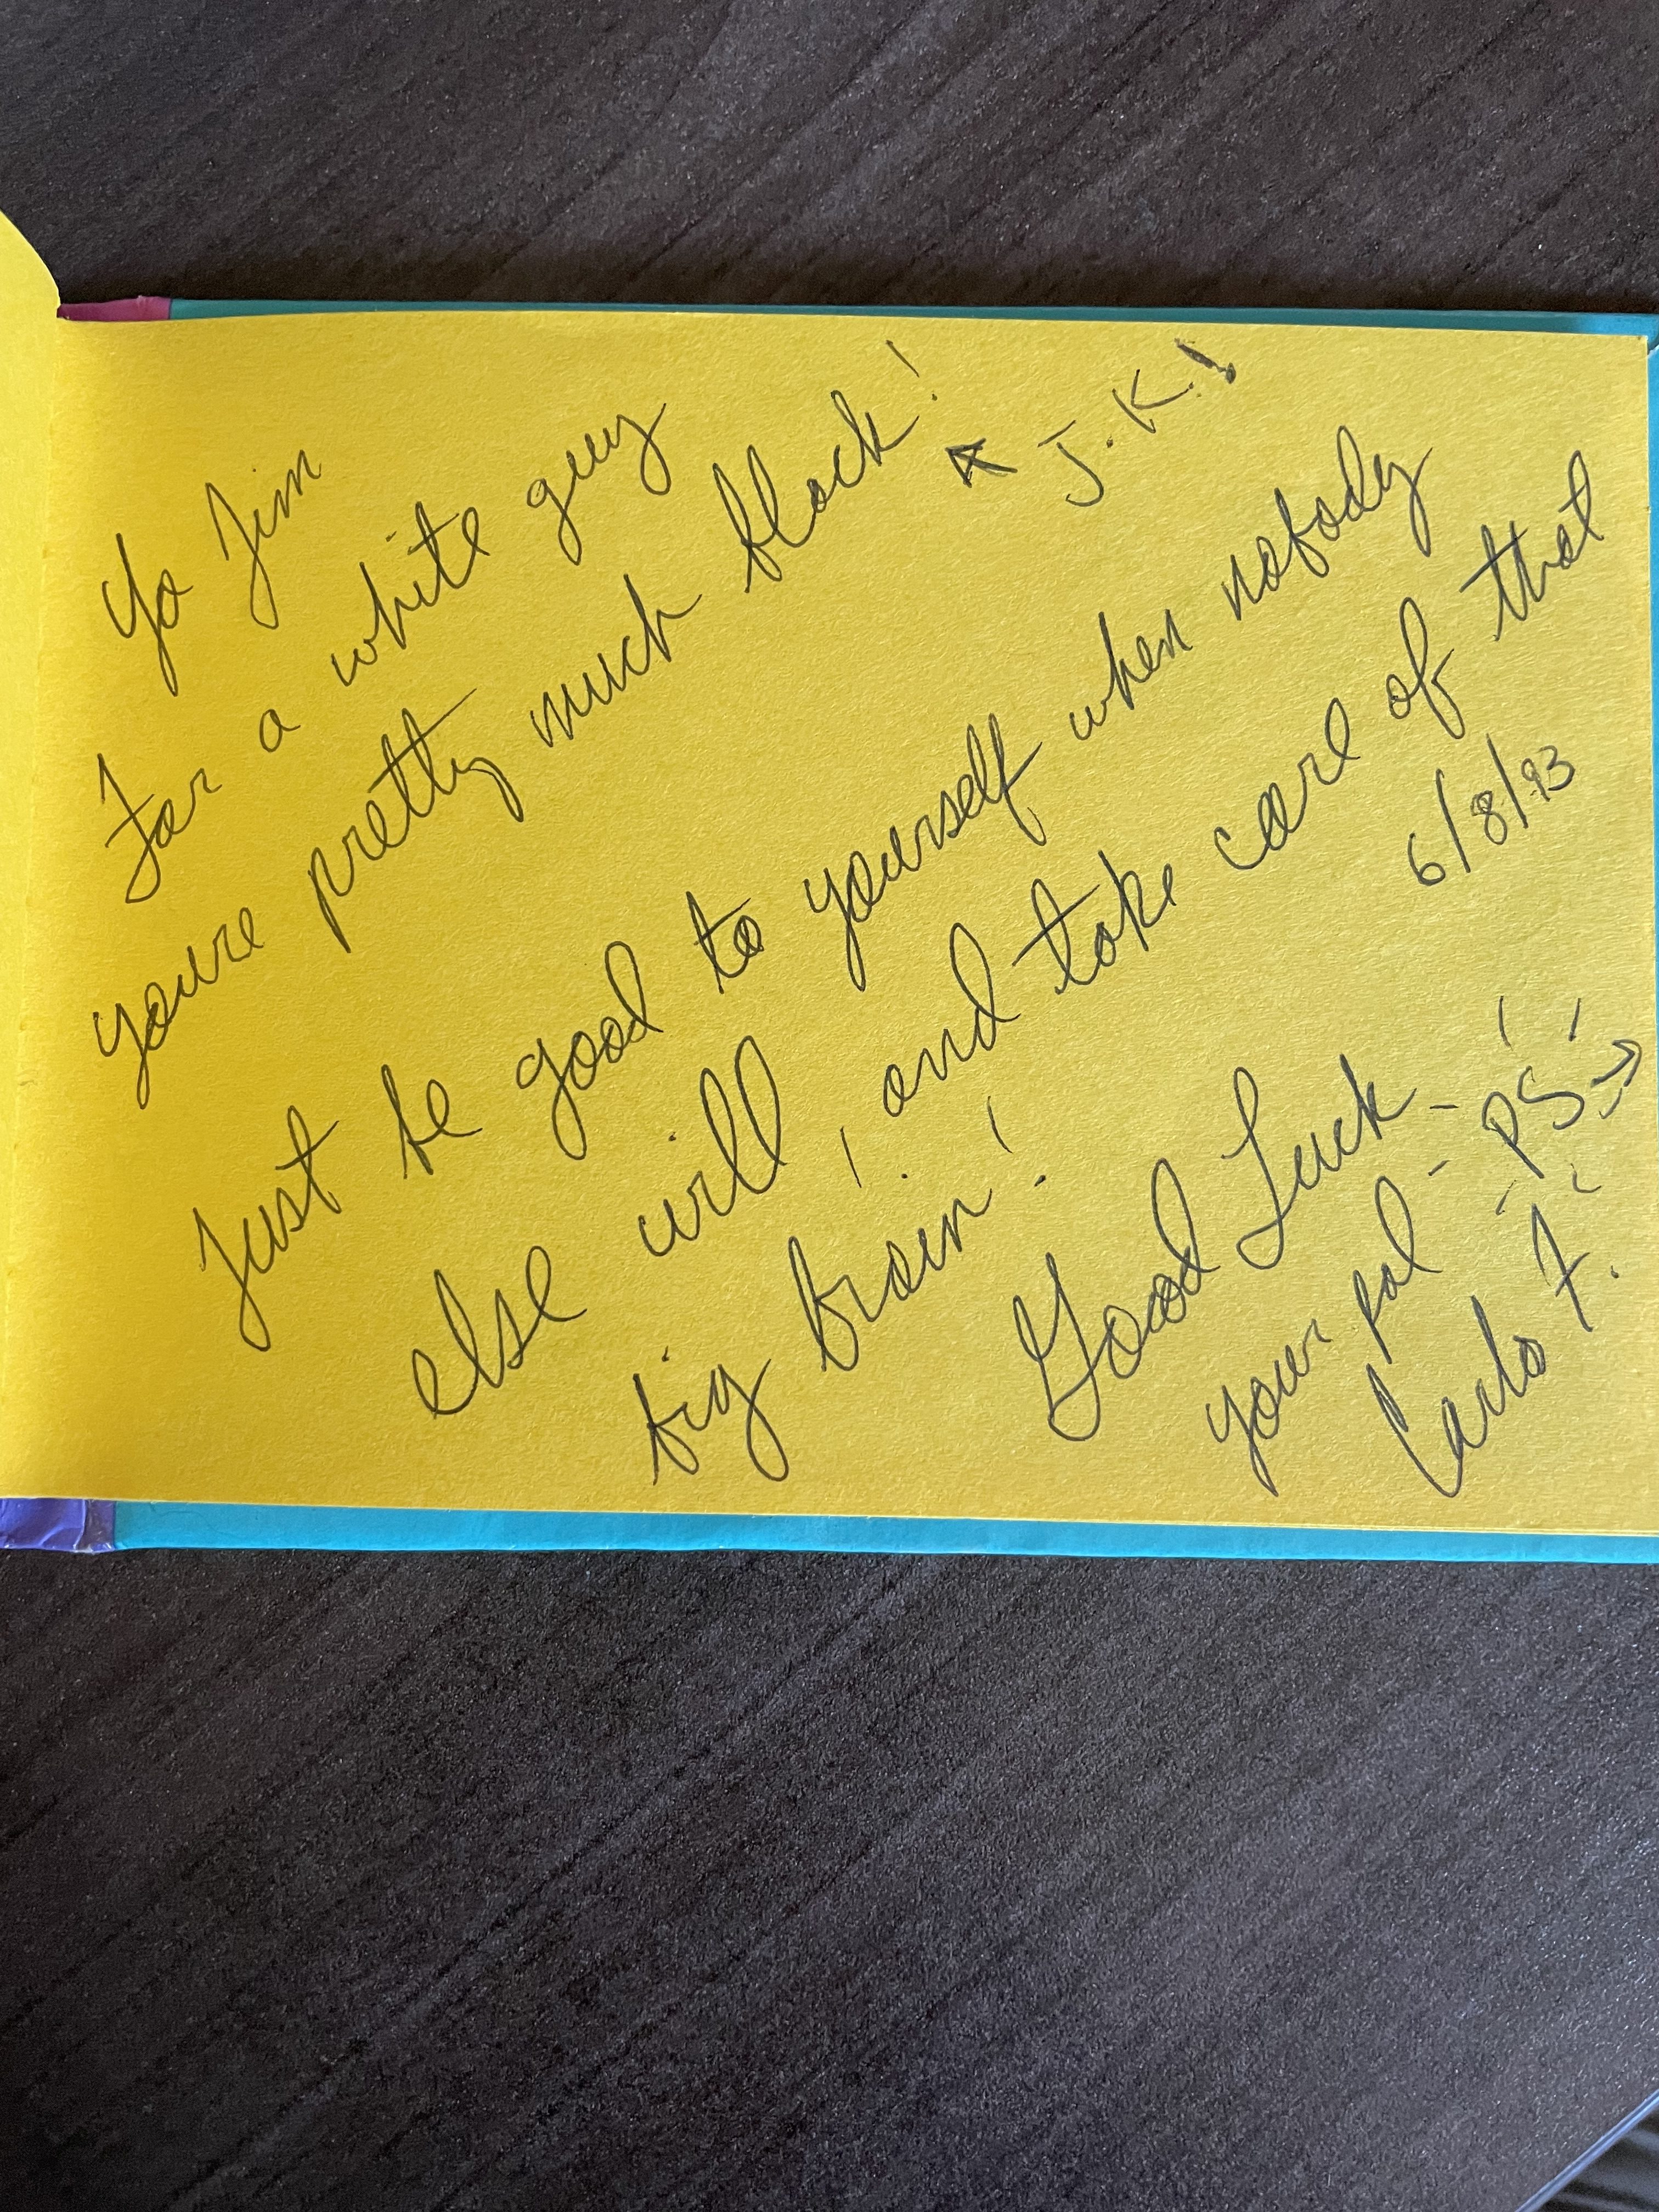 Yo Jim
For a white guy
youre pretty much black! ↖ J.K.!
Just be good to yourself when nobody
else will, and take care of that
big brain!
6/8/93
Good Luck -
your pal - PS →
Carlo F.